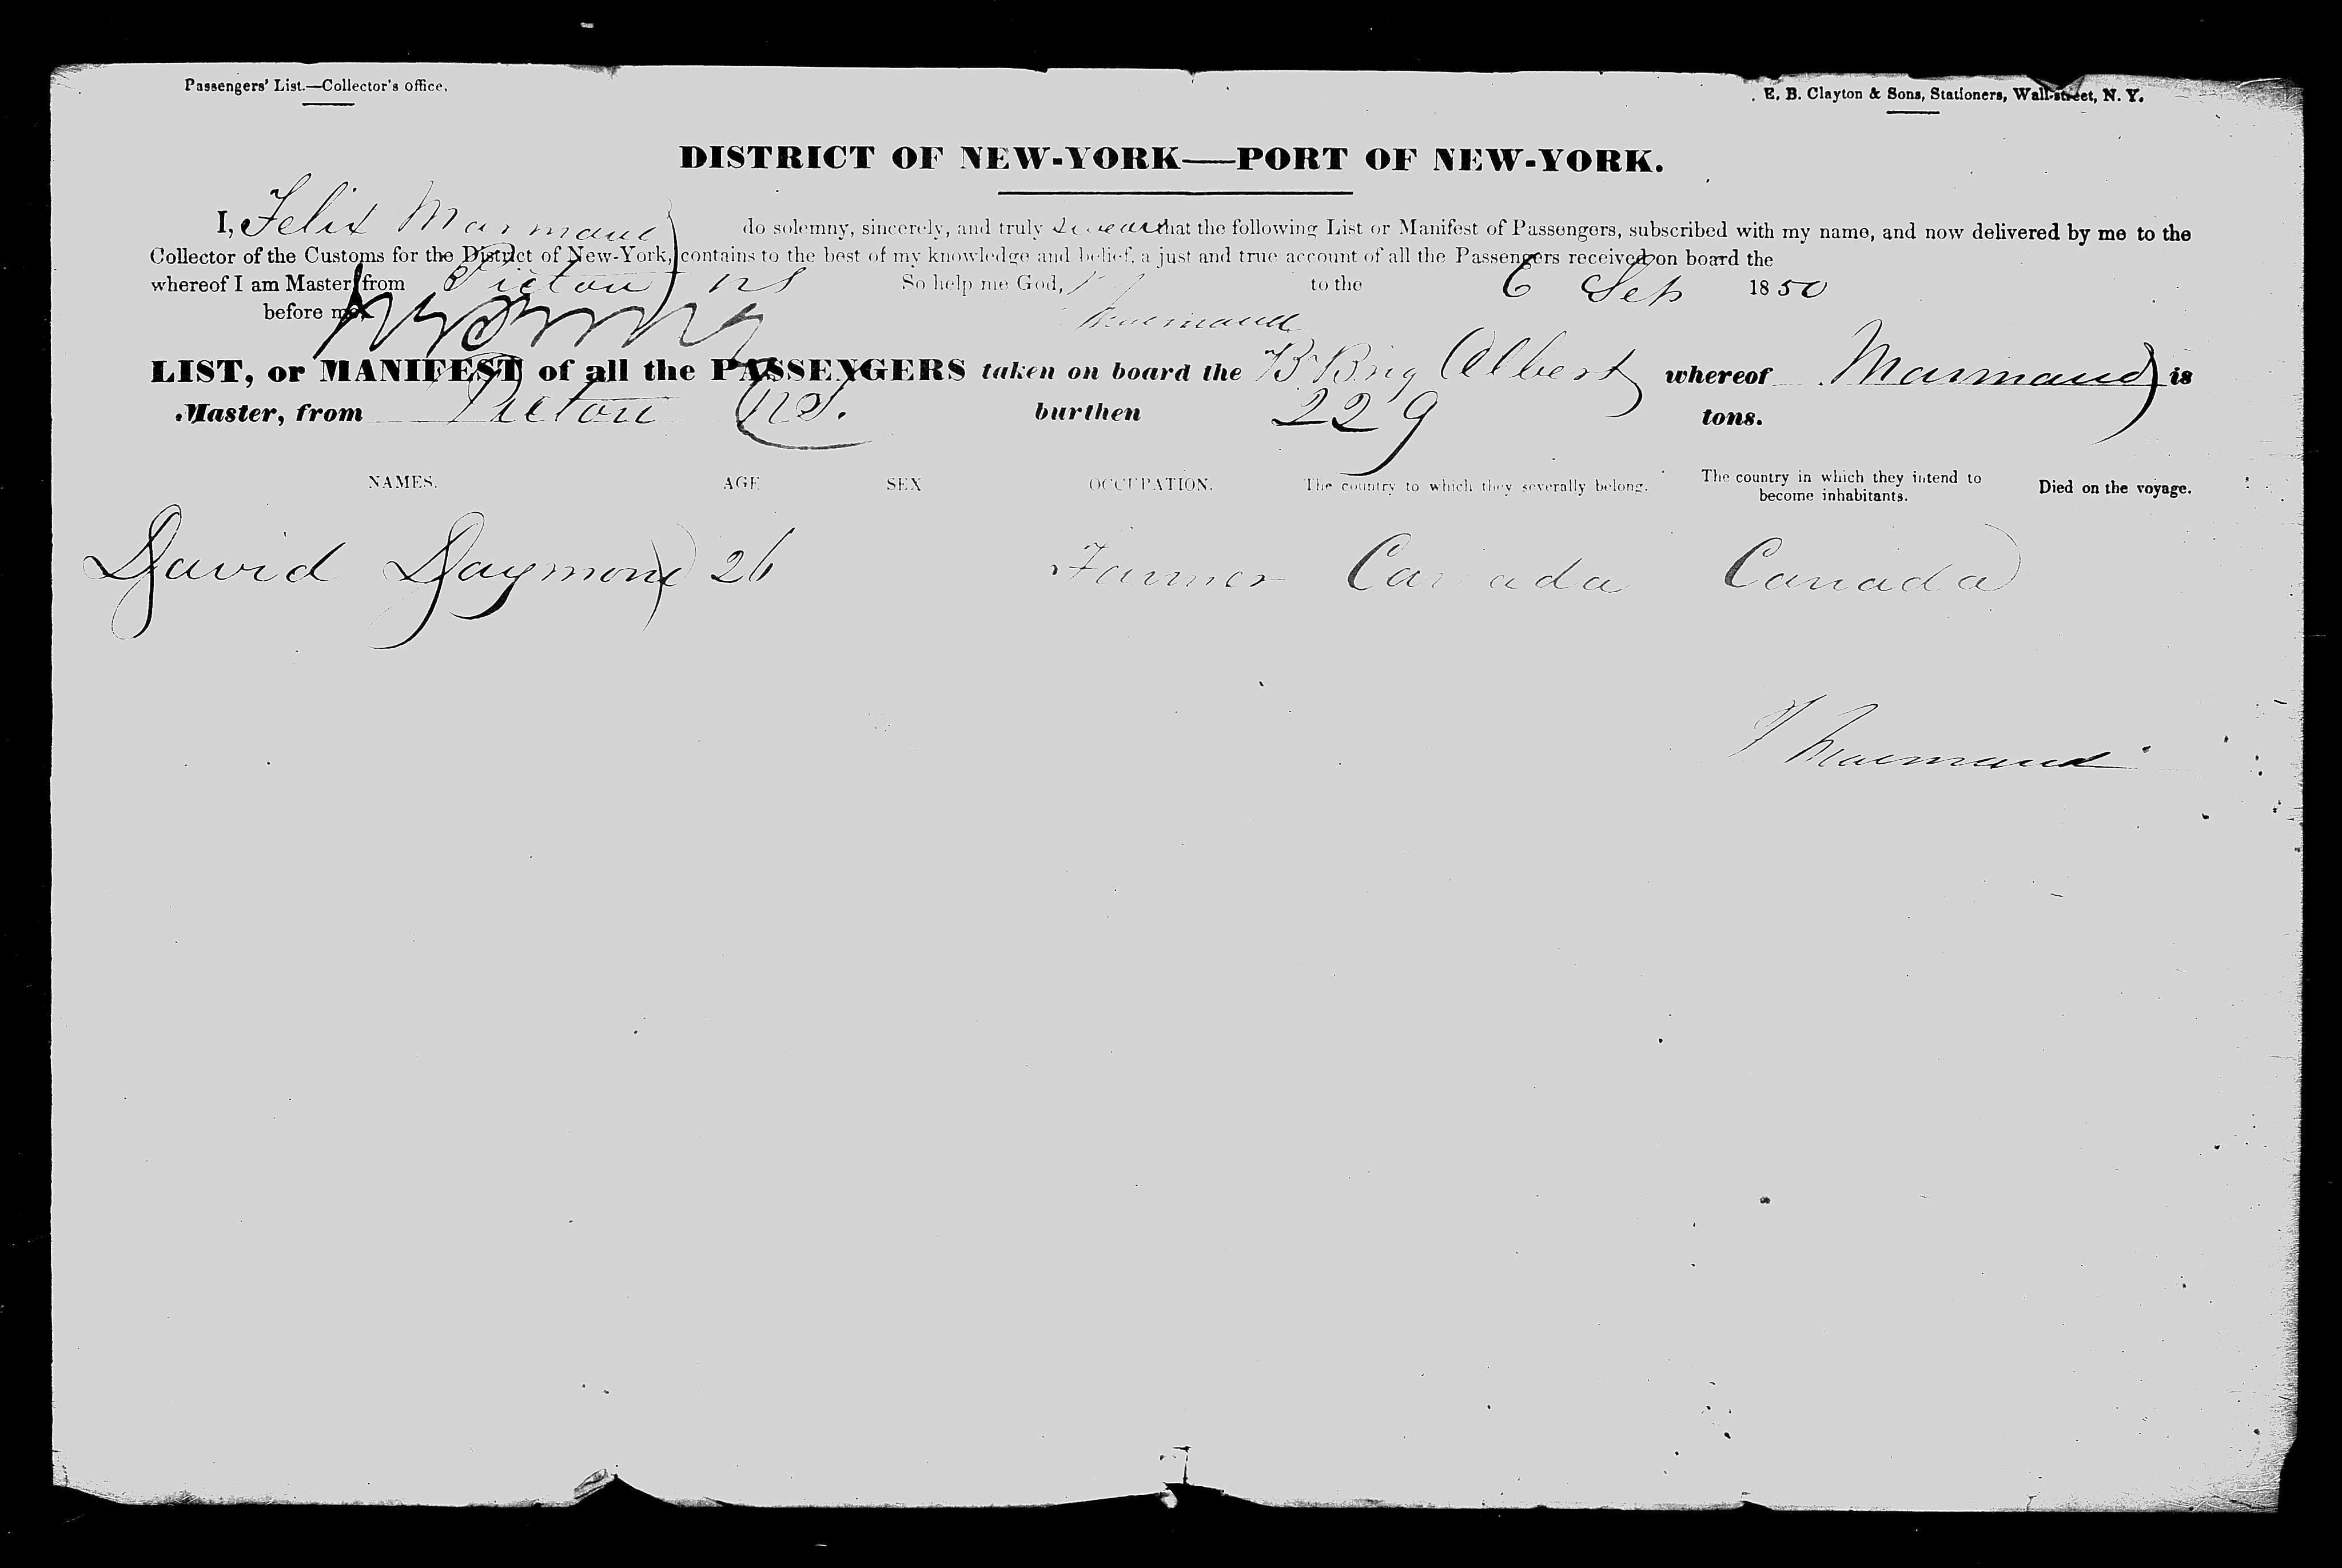 Passengers' List.—Collector's office.
E. B. Clayton & Sons, Stationers, Wall-street, N. Y.
DISTRICT OF NEW-YORK—PORT OF NEW-YORK.
I, Felix Marmaud do solemny, sincerely, and truly swear that the following List or Manifest of Passengers, subscribed with my name, and now delivered by me to the
Collector of the Customs for the District of New-York, contains to the best of my knowledge and belief, a just and true account of all the Passengers received on board the
whereof I am Master from Pictou NS So help me God, to the 6 Sep 1850
before me,
F Marmaud
LIST, or MANIFEST of all the PASSENGERS taken on board the Br Brig Albert whereof Marmaud is
Master, from Pictou NS. burthen 229 tons.
NAMES. AGE SEX OCCUPATION. The country to which they severally belong. The country in which they intend to become inhabitants. Died on the voyage.
David Daymond 26 Farmer Canada Canada
F Marmaud